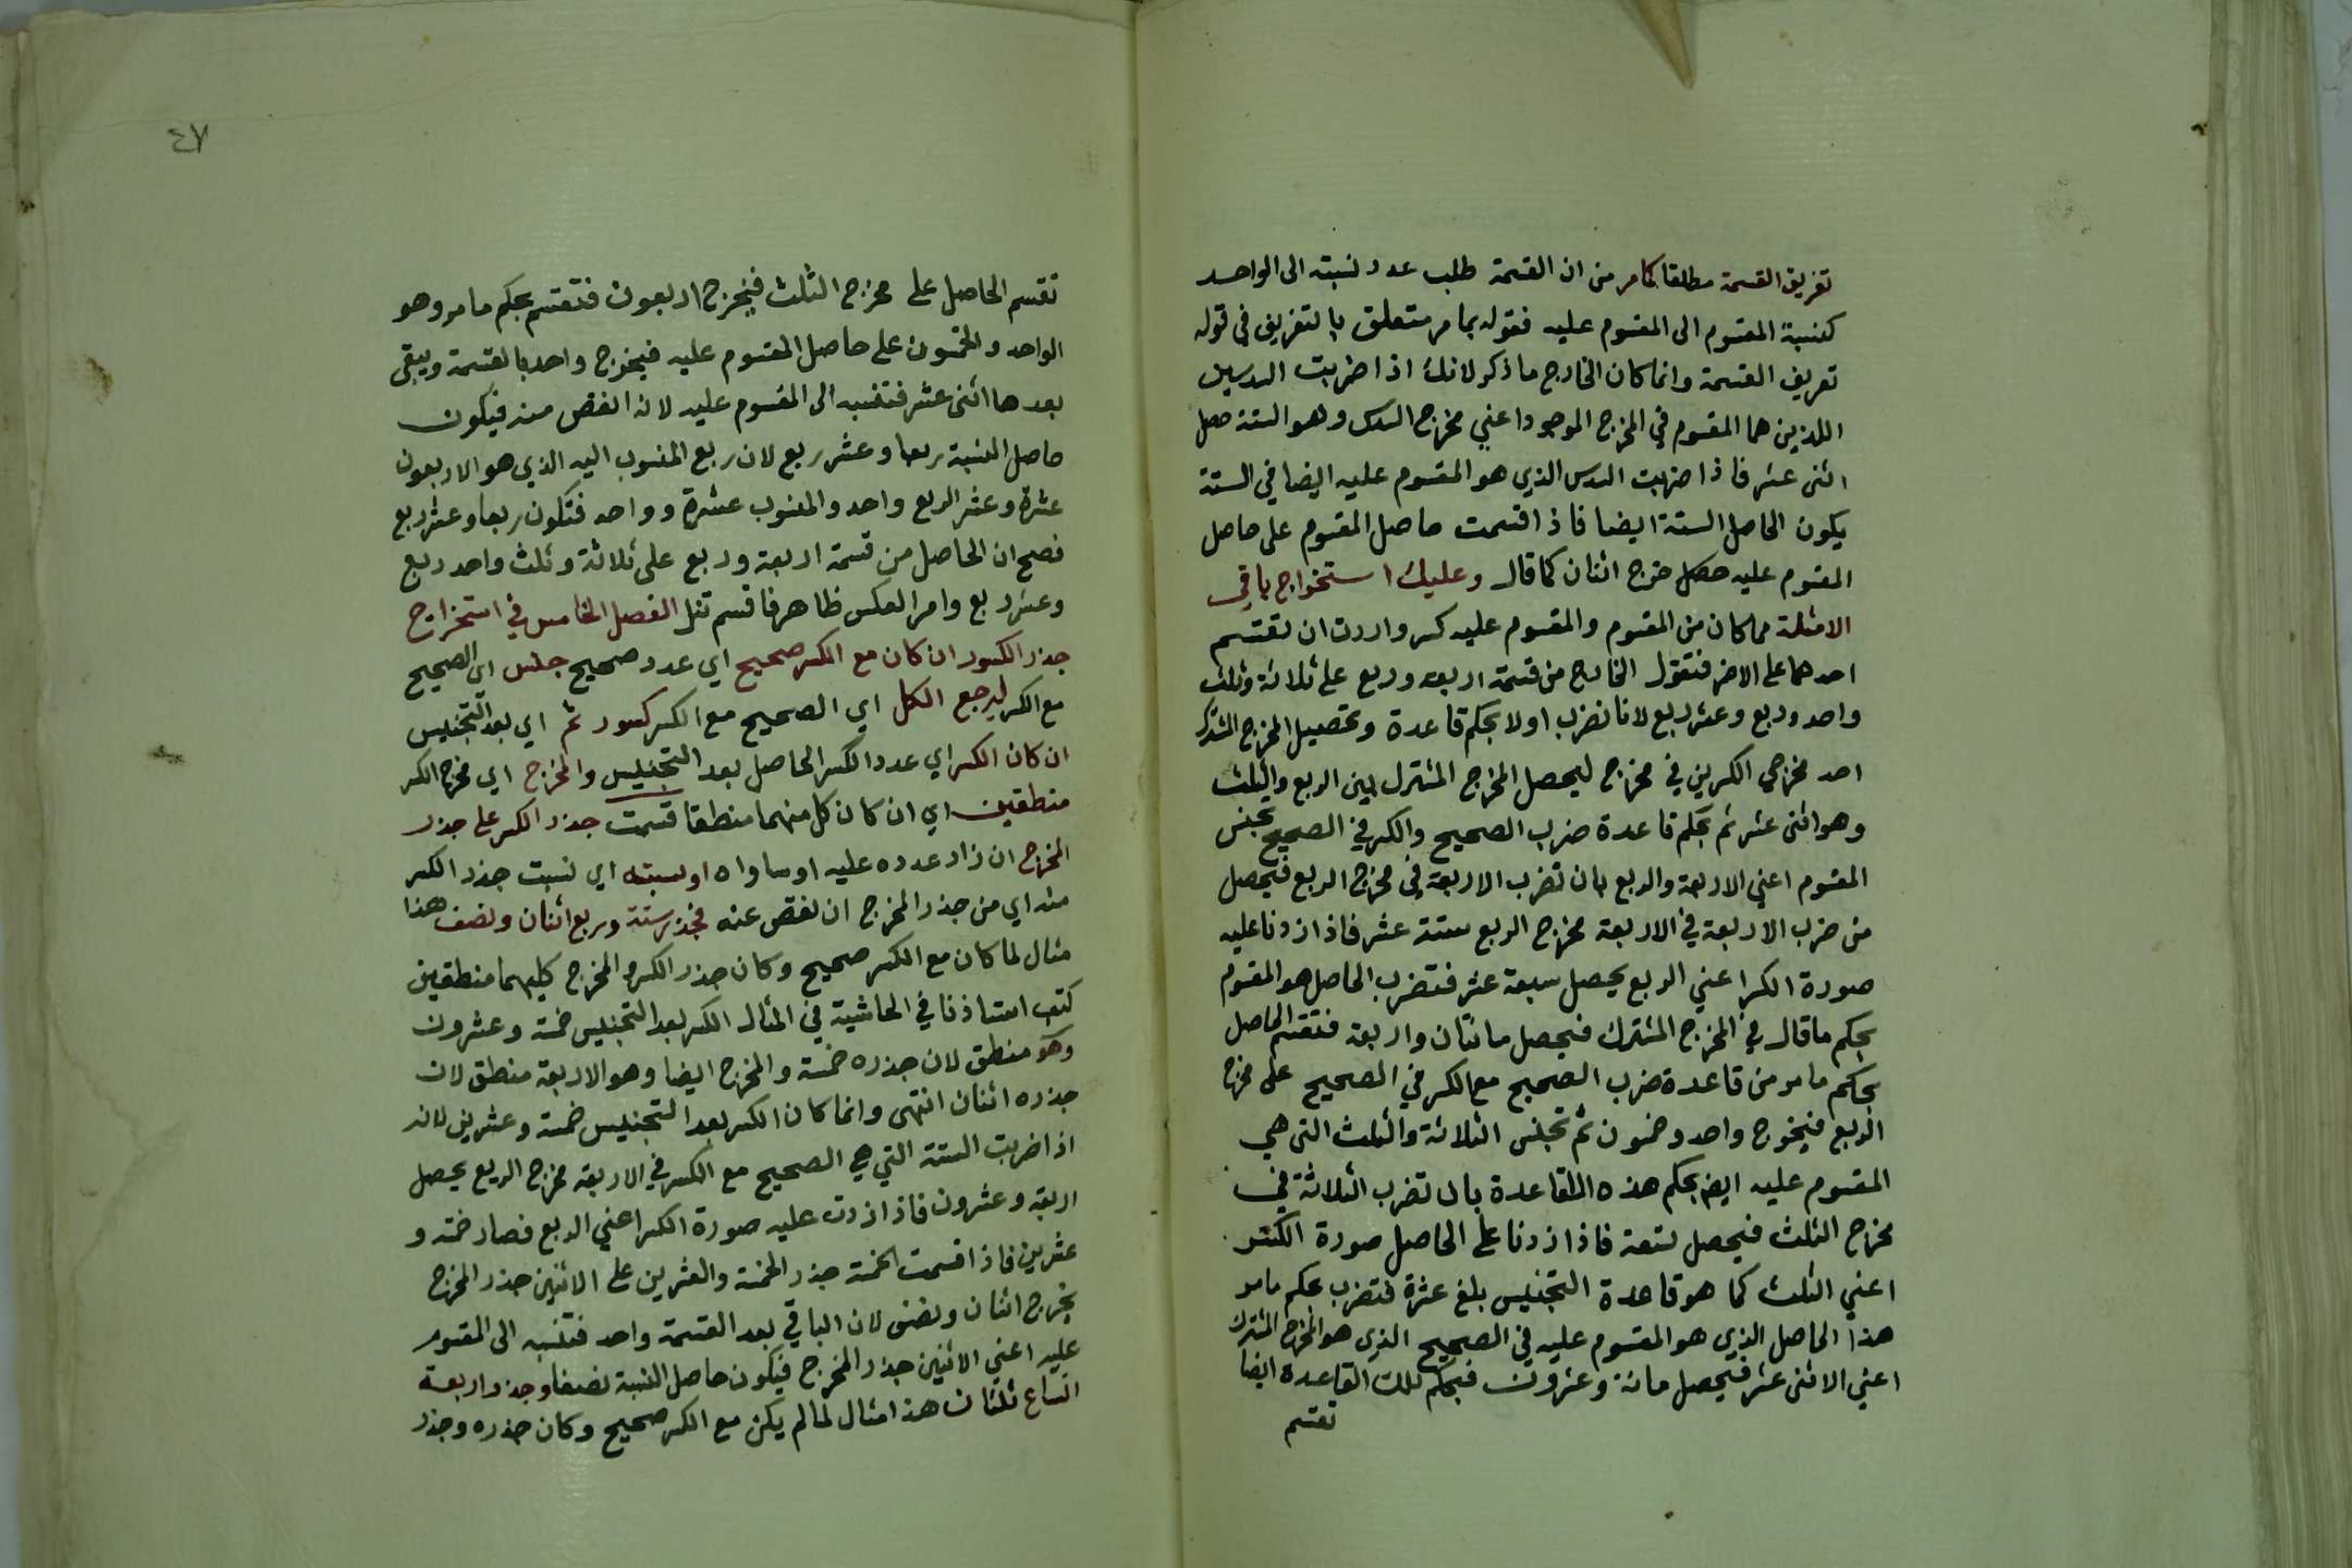 تعريف القسمة مطلقا كما مر من ان القسمة طلب عدد نسبته الى الواحد
كنسبة المقسوم الى المقسوم عليه فقوله بما مر متعلق بالتعريف في قوله
تعريف القسمة وانما كان الخارج ما ذكر لانك اذا ضربت السدسين
اللذين هما المقسوم في المخرج الموجود اعني مخرج السدس وهو الستة حصل
اثنى عشر فاذا ضربت السدس الذي هو المقسوم عليه ايضا في الستة
يكون الحاصل الستة ايضا فاذا قسمت حاصل المقسوم على حاصل
المقسوم عليه حصل خرج اثنان كما قال وعليك استخراج باقي
الامثلة مما كان من المقسوم والمقسوم عليه كسر واردت ان تقتسم
احدهما على الاخر فتقول الخارج من قسمة اربعة وربع على ثلاثة وثلث
واحد وربع وعشر ربع لانا نضرب اولا بحكم قاعدة وتحصيل المخرج المشترك
احد مخرجي الكسرين في مخرج ليحصل المخرج المشترك بين الربع والثلث
وهو اثنى عشر ثم بحكم قاعدة ضرب الصحيح والكسر في الصحيح تجنس
المقسوم اعني الاربعة والربع بان تضرب الاربعة في مخرج الربع فيحصل
من ضرب الاربعة في الاربعة مخرج الربع ستة عشر فاذا زدنا عليه
صورة الكسر اعني الربع يحصل سبعة عشر فتضرب الحاصل هو المقسوم
بحكم ما قال في المخرج المشترك فيحصل مائتان واربعة فتقسم الحاصل
بحكم ما مر من قاعدة ضرب الصحيح مع الكسر في الصحيح على مخرج
الربع فيخرج واحد وخمسون ثم تجنس الثلاثة والثلث التي هي
المقسوم عليه ايضا بحكم هذه القاعدة بان تضرب الثلاثة في
مخرج الثلث فيحصل تسعة فاذا زدنا على الحاصل صورة الكسر
اعني الثلث كما هو قاعدة التجنيس بلغ عشرة فتضرب بحكم ما مر
هذا الحاصل الذي هو المقسوم عليه في الصحيح الذي هو المخرج المشترك
اعني الاثنى عشر فيحصل مائة وعشرون فبحكم تلك القاعدة ايضا
تقسم
٤٧
تقسم الحاصل على مخرج الثلث فيخرج اربعون فتقسم بحكم ما مر وهو
الواحد والخمسون على حاصل المقسوم عليه فيخرج واحد بالقسمة ويبقى
بعدها اثنى عشر فتنسبه الى المقسوم عليه لانه انقص منه فيكون
حاصل النسبة ربعا وعشر ربع لان ربع المنسوب اليه الذي هو الاربعون
عشرة وعشر الربع واحد والمنسوب عشرة وواحد فتكون ربعا وعشر ربع
فصح ان الحاصل من قسمة اربعة وربع على ثلاثة وثلث واحد وربع
وعشر ربع وامر العكس ظاهر فاقسم تنل الفصل الخامس في استخراج
جذر الكسور ان كان مع الكسر صحيح اي عدد صحيح جنس اى الصحيح
مع الكسر ليرجع الكل اي الصحيح مع الكسر كسور ثم اي بعد التجنيس
ان كان الكسر اي عدد الكسر الحاصل بعد التجنيس والمخرج اي مخرج الكسر
منطقين اي ان كان كل منهما منطقا قسمت جذر الكسر على جذر
المخرج ان زاد عدده عليه او ساواه او نسبته اي نسبت جذر الكسر
منه اي من جذر المخرج ان نقص عنه فجذر ستة وربع اثنان ونصف هذا
مثال لما كان مع الكسر صحيح وكان جذر الكسر والمخرج كليهما منطقين
كتب استاذنا في الحاشية في المثال الكسر بعد التجنيس خمسة وعشرون
وهو منطق لان جذره خمسة والمخرج ايضا وهو الاربعة منطق لان
جذره اثنان انتهى وانما كان الكسر بعد التجنيس خمسة وعشرين لانه
اذا ضربت الستة التي هي الصحيح مع الكسر في الاربعة مخرج الربع يحصل
اربعة وعشرون فاذا زدت عليه صورة الكسر اعني الربع فصار خمسة و
عشرين فاذا قسمت الخمسة جذر الخمسة والعشرين على الاثنين جذر المخرج
يخرج اثنان ونصف لان الباقي بعد القسمة واحد فتنسبه الى المقسوم
عليه اعني الاثنين جذر المخرج فيكون حاصل النسبة نصفا وجذر اربعة
اتساع ثلثان هذا مثال لما لم يكن مع الكسر صحيح وكان جذره وجذر